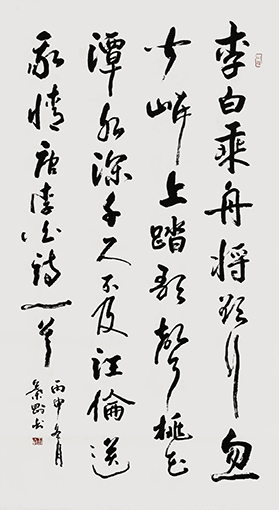 李白乘舟将欲行忽
闻岸上踏歌声桃花
潭水深千尺不及汪伦送
我情唐李白诗一首
丙申冬月
书